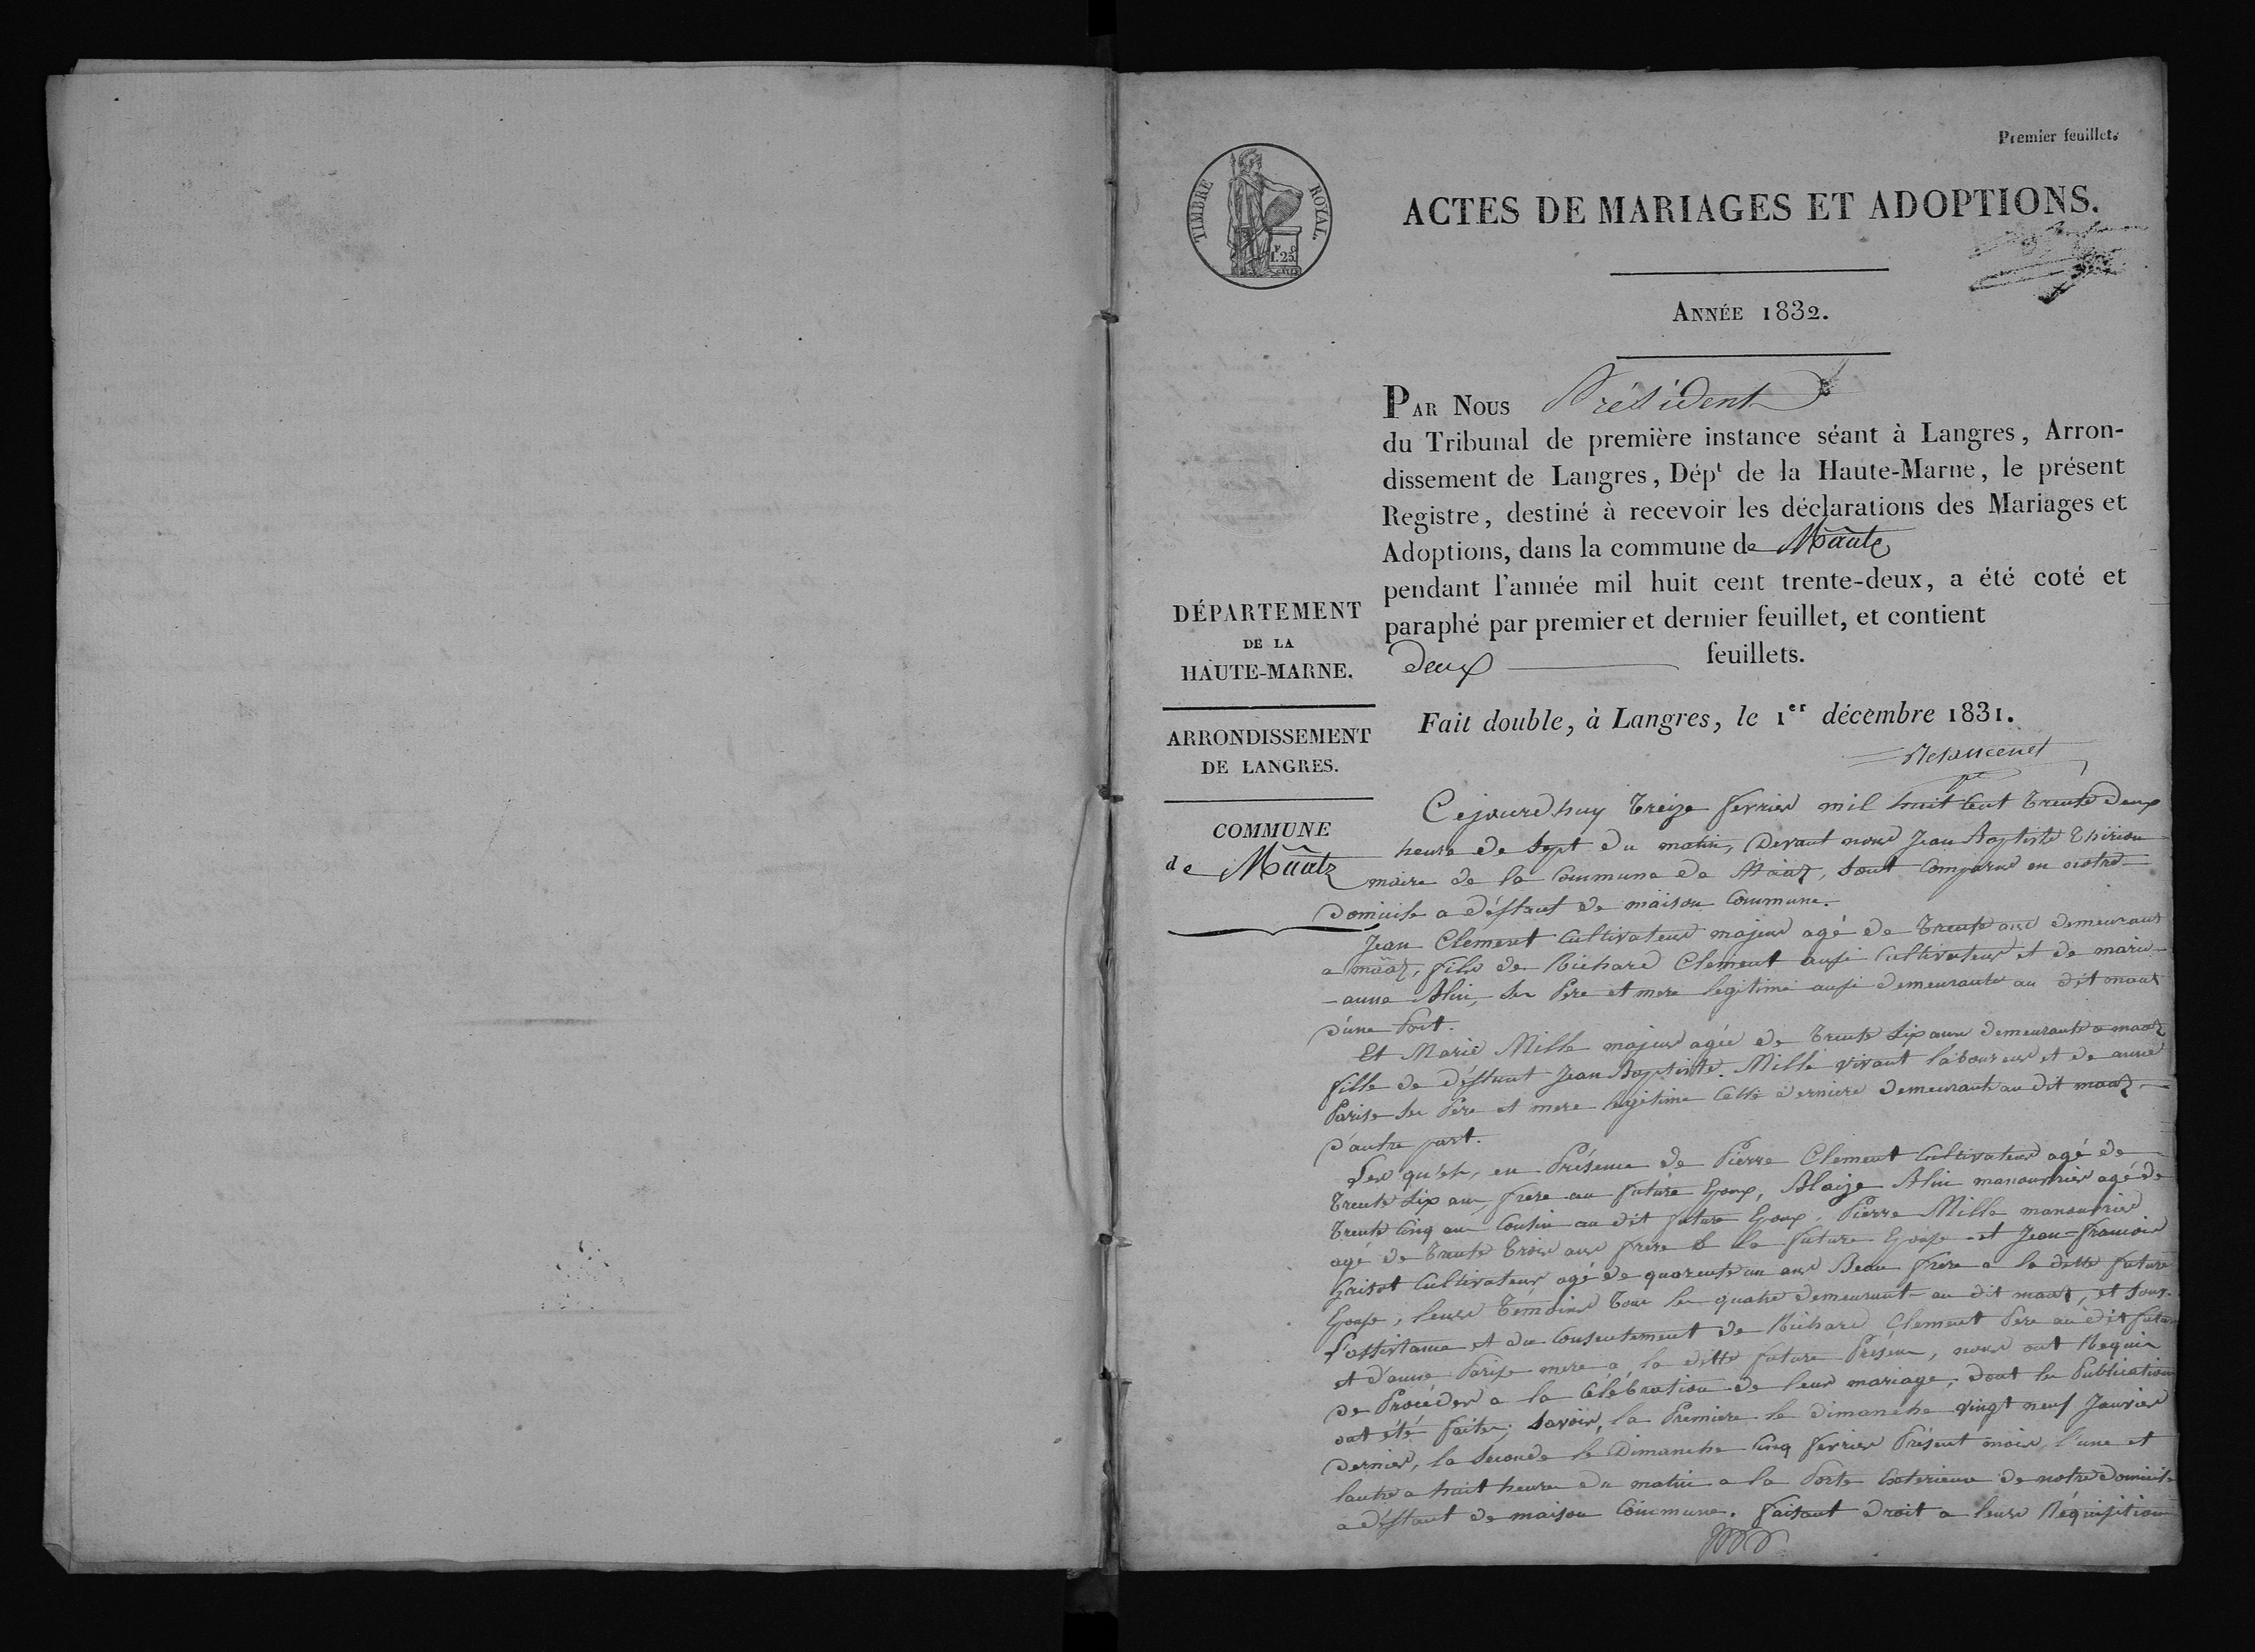 Premier feuillet.
TIMBRE ROYAL.
F. C.
1.25
ACTES DE MARIAGES ET ADOPTIONS.
ANNÉE 1832.
PAR NOUS Président
du Tribunal de première instance séant à Langres, Arron-
dissement de Langres, Dépt de la Haute-Marne, le présent
Registre, destiné à recevoir les déclarations des Mariages et
Adoptions, dans la commune de Mäatz
pendant l'année mil huit cent trente-deux, a été coté et
paraphé par premier et dernier feuillet, et contient
deux feuillets.
Fait double, à Langres, le 1er décembre 1831.
DÉPARTEMENT
DE LA
HAUTE-MARNE.
ARRONDISSEMENT
DE LANGRES.
COMMUNE
de Mäatz
Cejourdhuy treize fevrier mil huit Cent trente deux
heure de sept du matin, devant nous Jean Baptiste Thirion
maire de la Commune de Mäaz, sont Comparus en notre
domicile a déffaut de maison Commune.
Jean Clement Cultivateur majeur agé de trente ans demeurant
a mäaz, fils de Richard Clement aussi Cultivateur et de marie-
-anne Alin, ses Pere et mere legitime aussi demeurants au dit maaz
d'une Part.
Et Marie Mille majeur agée de trente six ans demeurante a maaz
fille de déffunt Jean Baptiste Mille vivant laboureur et de anne
Parise ses Pere et mere legitime Cette derniere demeurante au dit maaz
d'autre part.
Lesqu'els, en Présence de Pierre Clement Cultivateur agé de
trente six ans frere au future Epoux, Blaize Alin manouvrier agé de
trente Cinq ans Cousin au dit future Epoux, Pierre Mille manouvrier
agé de trente trois ans frere à la future Epouse et Jean-francois
Grisot Cultivateur agé de quarente un ans Beau frere a la ditte future
Epouse, leurs témoins tous les quatre demeurant au dit maaz, et sous
l'assistance et du Consentement de Richard Clement Pere au dit futur
et d'anne Parise mere a la ditte future Présens, nous ont Requis
de Procéder a la Célébration de leur mariage, dont les Publications
ont été faites; savoir, la Premiere le dimanche vingt neuf Janvier
dernier, la seconde le Dimanche Cinq fevrier Présent mois, l'une et
lautre a huit heures du matin a la Porte Exterieure de notre domicile
a déffaut de maison Commune. faisant droit a leurs Réquisition